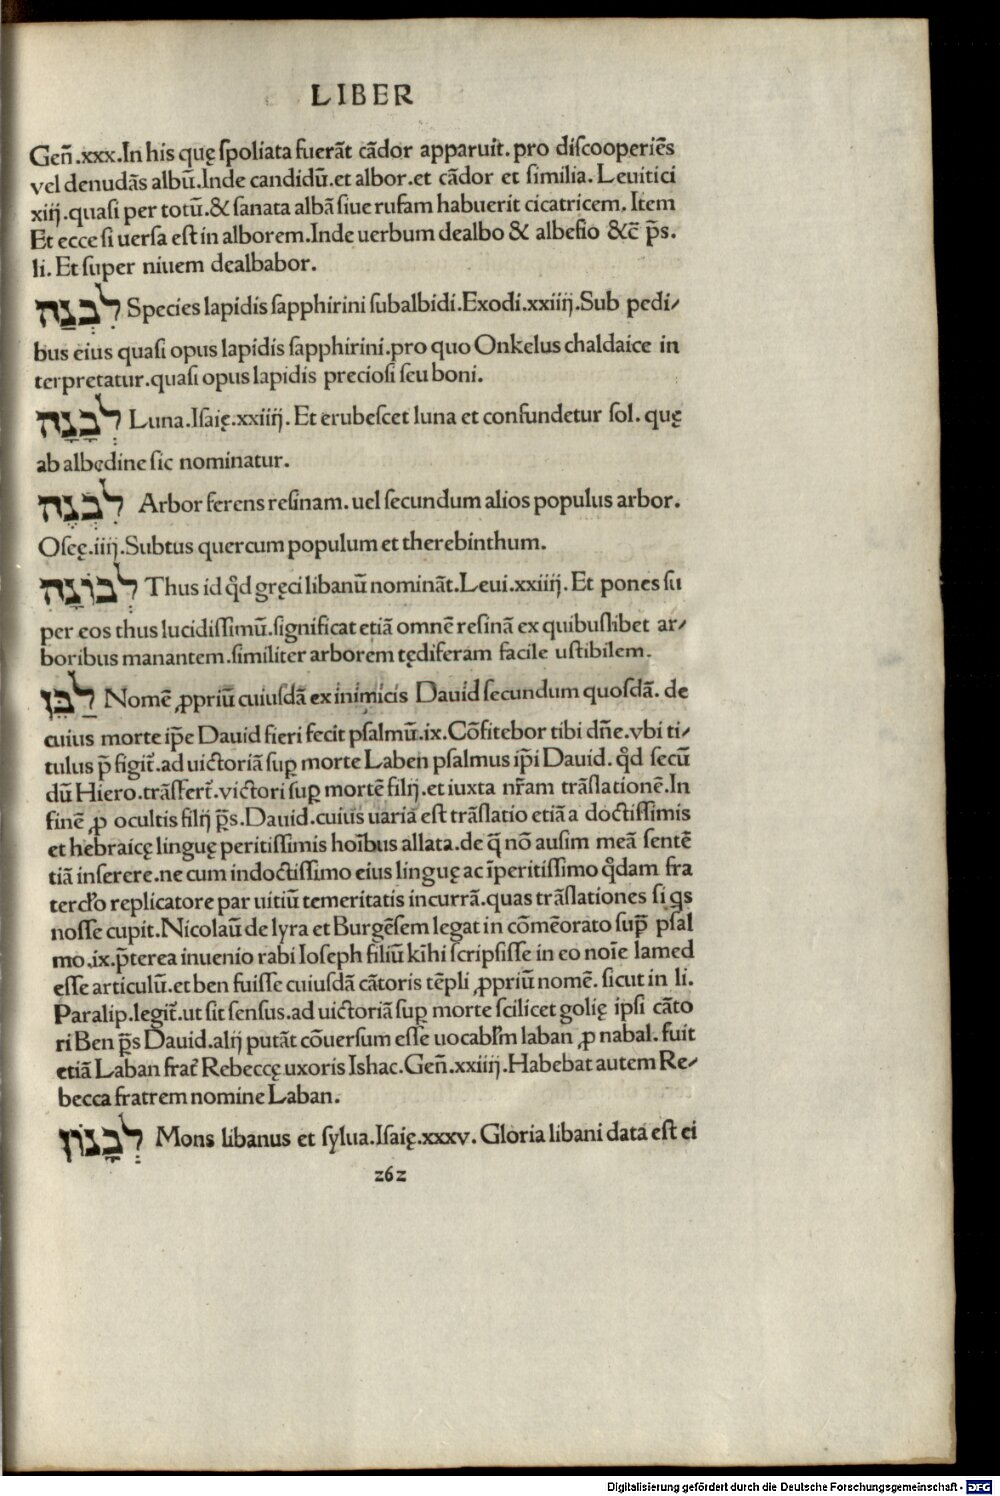 LIBER
Geñ.xxx.In his quę ſpoliata fuerãt cãdor apparuit.pro diſcooperiẽs
vel denudãs albũ.Inde candidũ.et albor.et cãdor et ſimilia.Leuitici
xiij.quaſi per totũ.& ſanata albã ſiue rufam habuerit cicatricem.Item
Et ecce ſi uerſa eſt in alborem.Inde uerbum dealbo & albeſio &c̃ p̃s.
li.Et ſuper niuem dealbabor.
לִבְנַה Species lapidis ſapphirini ſubalbidi.Exodi.xxiiij.Sub pedi⸗
bus eius quaſi opus lapidis ſapphirini.pro quo Onkelus chaldaice in
terpretatur.quaſi opus lapidis precioſi ſeu boni.
לְבָנָה Luna.Iſaię.xxiiij.Et erubeſcet luna et confundetur ſol.quę
ab albedine ſic nominatur.
לִבְנֶה Arbor ferens reſinam.uel ſecundum alios populus arbor.
Oſeę.iiij.Subtus quercum populum et therebinthum.
לְבוֹנָה Thus id qd̃ gręci libanũ nominãt.Leui.xxiiij.Et pones ſu
per eos thus lucidiſſimũ.ſignificat etiã omnẽ reſinã ex quibuſlibet ar⸗
boribus manantem.ſimiliter arborem tędiferam facile uſtibilem.
לַבֵּן Nomẽ ꝓpriũ cuiuſdã ex inimicis Dauid ſecundum quoſdã.de
cuius morte ip̃e Dauid fieri fecit pſalmũ.ix.Cõfitebor tibi dñe.vbi ti⸗
tulus p̃figit̃.ad uictoriã ſuꝑ morte Laben pſalmus ip̃i Dauid.qd̃ ſecũ
dũ Hiero.trãſfert̃.victori ſuꝑ mortẽ filij.et iuxta nr̃am trãſlationẽ.In
finẽ ꝓ ocultis filij p̃s.Dauid.cuius uaria eſt trãſlatio etiã a doctiſſimis
et hebraicę linguę peritiſſimis hoĩbus allata.de q̃ nõ auſim meã ſentẽ
tiã inſerere.ne cum indoctiſſimo eius linguę ac ĩperitiſſimo qd̃am fra
terc̃lo replicatore par uitiũ temeritatis incurrã.quas trãſlationes ſi qs
noſſe cupit.Nicolaũ de lyra et Burgẽſem legat in cõmẽorato ſup̃ pſal
mo.ix.p̃terea inuenio rabi Ioſeph filiũ kĩhi ſcripſiſſe in eo noĩe lamed
eſſe articulũ.et ben fuiſſe cuiuſdã cãtoris tẽpli ꝓpriũ nomẽ.ſicut in li.
Paralip.legit̃.ut ſit ſenſus.ad uictoriã ſuꝑ morte ſcilicet golię ipſi cãto
ri Ben p̃s Dauid.alij putãt cõuerſum eſſe uocabl̃m laban ꝓ nabal.fuit
etiã Laban frat̃ Rebeccę uxoris Ishac.Geñ.xxiiij.Habebat autem Re⸗
becca fratrem nomine Laban.
לְבָנוֹן Mons libanus et ſylua.Iſaię.xxxv.Gloria libani data eſt ei
262
Digitalisierung gefördert durch die Deutsche Forschungsgemeinschaft - DFG